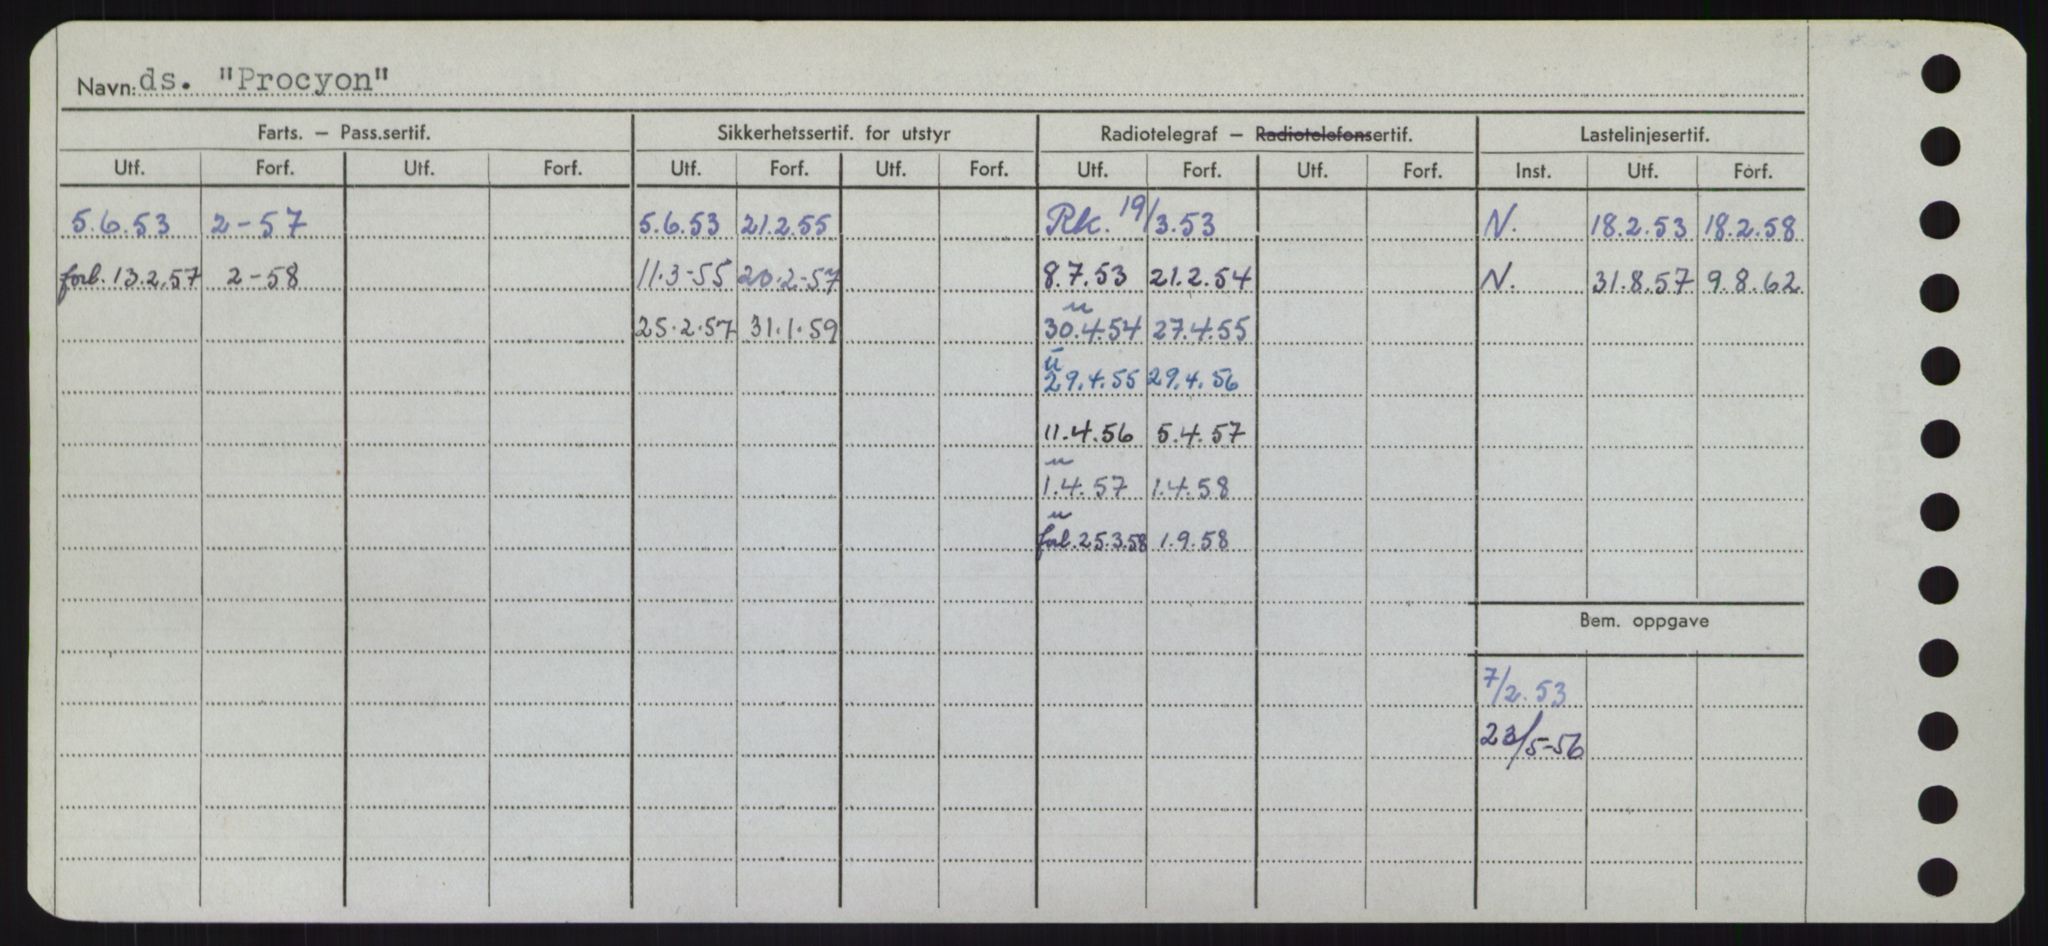 Navn: ds. "Procyon"
Farts. – Pass.sertif. Sikkerhetssertif. for utstyr Radiotelegraf – Radiotelefonsertif. Lastelinjesertif.
Utf. Forf. Utf. Forf. Utf. Forf. Utf. Forf. Utf. Forf. Utf. Forf. Inst. Utf. Forf.
5.6.53 2-57 5.6.53 21.2.55 Rk. 19/3.53 N. 18.2.53 18.2.58
forl. 13.2.57 2-58 11.3-55 20.2-57 8.7.53 21.2.54 N. 31.8.57 9.8.62
u
25.2.57 31.1.59 30.4.54 27.4.55
u
29.4.55 29.4.56
11.4.56 5.4.57
u
1.4.57 1.4.58
u
forl. 25.3.58 1.9.58
Bem. oppgave
7/2.53
23/5-56